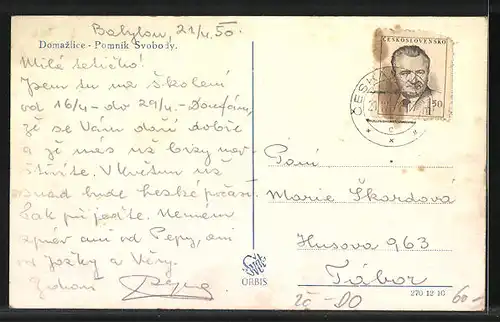 Babylon, 21/4.50.
Domažlice - Pomník Svobody.
Milá tetičko!
Jsem tu na školení
od 16/4 - do 29/4. - Doufám,
že se Vám daří dobře
a že nás už brzy nav-
štívíte. V květnu už
snad bude hezké počasí
tak přijeďte. Nemám
zpráv ani od Pepy, ani
od Jožky a Věry.
Zdraví
ČESKOSLOVENSKO
1.50
ČESKÁ
Paní
Marie Škardová
Husova 963
Tábor
SVĚT
ORBIS
270 12 10
ZČ - DO
60-